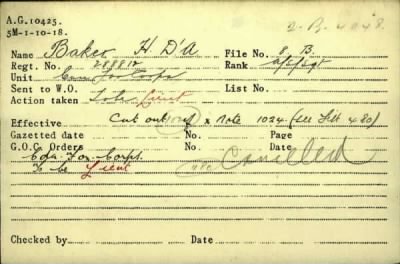 A.G.10425.
5M-1-10-18.
2-B. 4048.
Name Baker H. D'A File No. E. B.
Regt. No. Rank a/c/sgt
Unit Can For Corps
Sent to W.O. List No.
Action taken To be Lieut
Effective Cat out x note 1034 (see List 480)
Gazetted date No. Page
G.O.C. Orders No. Cancelled
Cdn. For. Corps.
To be Lieut
Checked by Date